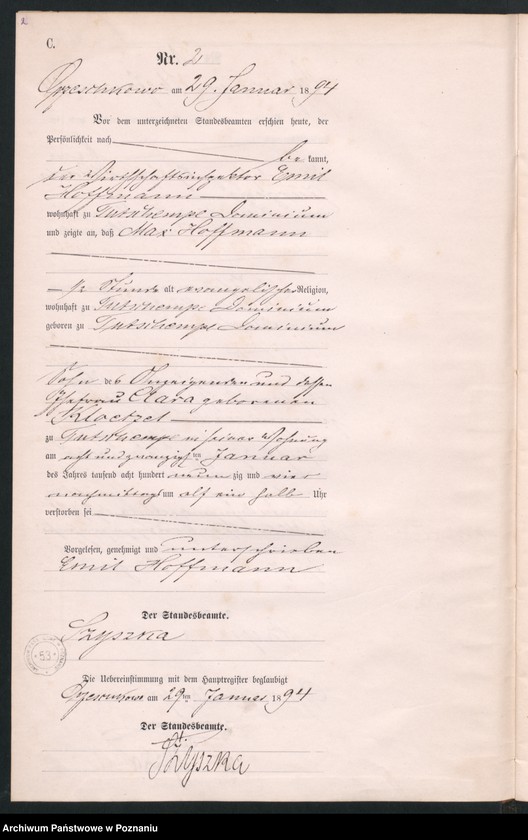 2
C.
Nr. 2
Opeschkowo am 29. Januar 1894
Vor dem unterzeichneten Standesbeamten erschien heute, der
Persönlichkeit nach
be kannt,
der Wirthschaftsinspektor Emil
Hoffmann
wohnhaft zu Dominium
und zeigte an, daß Max Hoffmann
1/2 Stunde alt evangelischer Religion,
wohnhaft zu Dominium
geboren zu Dominium
Sohn des Anzeigenden und dessen
Ehefrau Clara geborenen
Kloetzel
zu in seiner Wohnung
am acht und zwanzigsten Januar
des Jahres tausend acht hundert neun zig und vier
nachmittags um elf ein halb Uhr
verstorben sei
Vorgelesen, genehmigt und unterschrieben
Emil Hoffmann
Der Standesbeamte.
Szyszka
53
Die Uebereinstimmung mit dem Hauptregister beglaubigt
am 29ten Januar 1894
Der Standesbeamte.
Szyszka
Archiwum Państwowe w Poznaniu